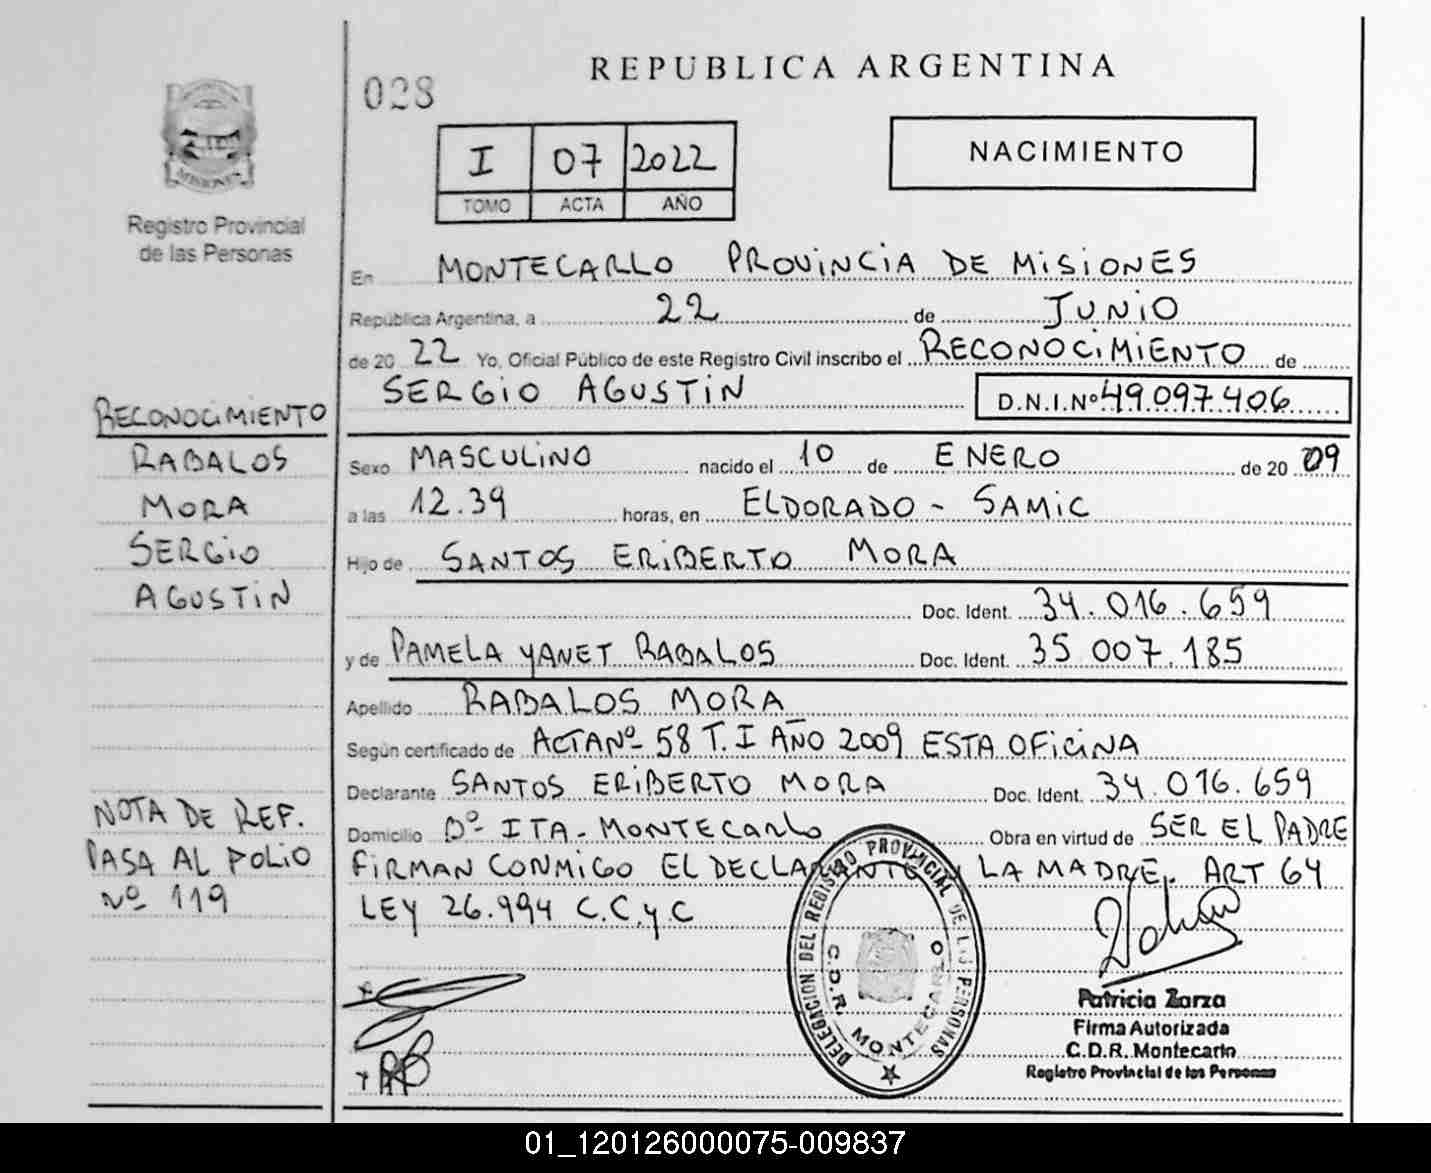 REPUBLICA ARGENTINA
028
NACIMIENTO
I 07 2022
TOMO ACTA AÑO
MISIONES
Registro Provincial
de las Personas
En MONTECARLO PROVINCIA DE MISIONES
República Argentina, a 22 de JUNIO
de 20 22 Yo, Oficial Público de este Registro Civil inscribo el RECONOCIMIENTO de
SERGIO AGUSTIN D.N.I.Nº 49.097.406
Sexo MASCULINO nacido el 10 de ENERO de 20 09
a las 12.39 horas, en ELDORADO - SAMIC
Hijo de SANTOS ERIBERTO MORA
Doc. Ident. 34.016.659
y de PAMELA YANET RABALOS Doc. Ident. 35 007.185
Apellido RABALOS MORA
Según certificado de ACTA Nº 58 T. I AÑO 2009 ESTA OFICINA
Declarante SANTOS ERIBERTO MORA Doc. Ident. 34.016.659
Domicilio Bº ITA - MONTECARLO Obra en virtud de SER EL PADRE
FIRMAN CONMIGO EL DECLARANTE Y LA MADRE. ART 64
LEY 26.994 C.C.y C
RECONOCIMIENTO
RABALOS
MORA
SERGIO
AGUSTIN
NOTA DE REF.
PASA AL FOLIO
Nº 119
DELEGACION DEL REGISTRO PROVINCIAL DE LAS PERSONAS
C.D.R. MONTECARLO
Patricia Zarza
Firma Autorizada
C.D.R. Montecarlo
Registro Provincial de las Personas
01_120126000075-009837